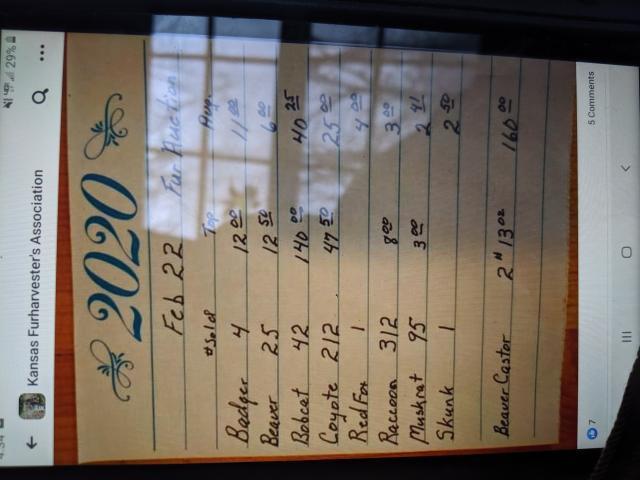 29%
Kansas Furharvester's Association
2020
Feb 22 Fur Auction
#Sold Top Avg.
Badger 4 12 00 11 00
Beaver 25 12 50 6 00
Bobcat 42 140 00 40 25
Coyote 212 47 50 25 00
Red Fox 1 4 00
Raccoon 312 8 00 3 00
Muskrat 95 3 00 2 41
Skunk 1 2 50
Beaver Castor 2# 13 oz 160 00
7 5 Comments